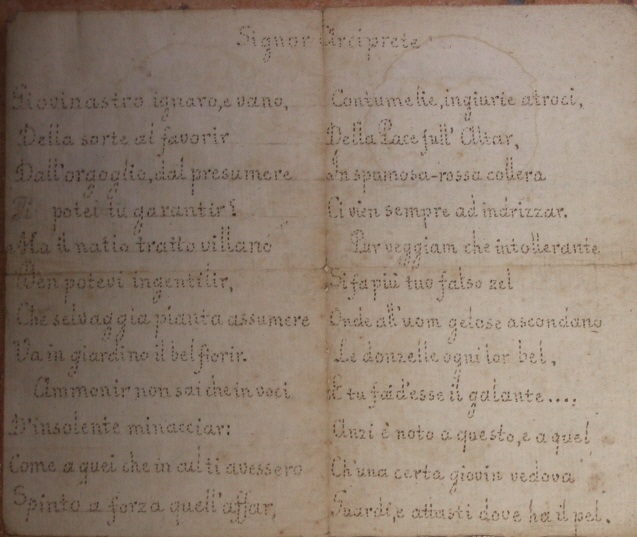 Signor Arciprete
Giovinastro ignaro, e vano,
Della sorte al favorir
Dall'orgoglio, dal presumere
Ti potei tu garantir!
Ma il natio tratto villano
Ben potevi ingentilir,
Che selvaggia pianta assumere
Va in giardino il bel fiorir.
Ammonir non sai che in voci
D'insolente minacciar:
Come a quei che in culti avessero
Spinto a forza quell'affar,
Contumelie, ingiurie atroci,
Della Pace full' Altar,
In spumosa-rossa collera
Ci vien sempre ad indrizzar.
Pur veggiam che intollerante
Si fa più tuo falso zel
Onde all'uom gelose ascondano
Le donzelle ogni lor bel,
E tu fai d'esse il galante....
Anzi è noto a questo, e a quel
Ch'una certa giovin vedova
Guardi, e attasti dove ha il pel.